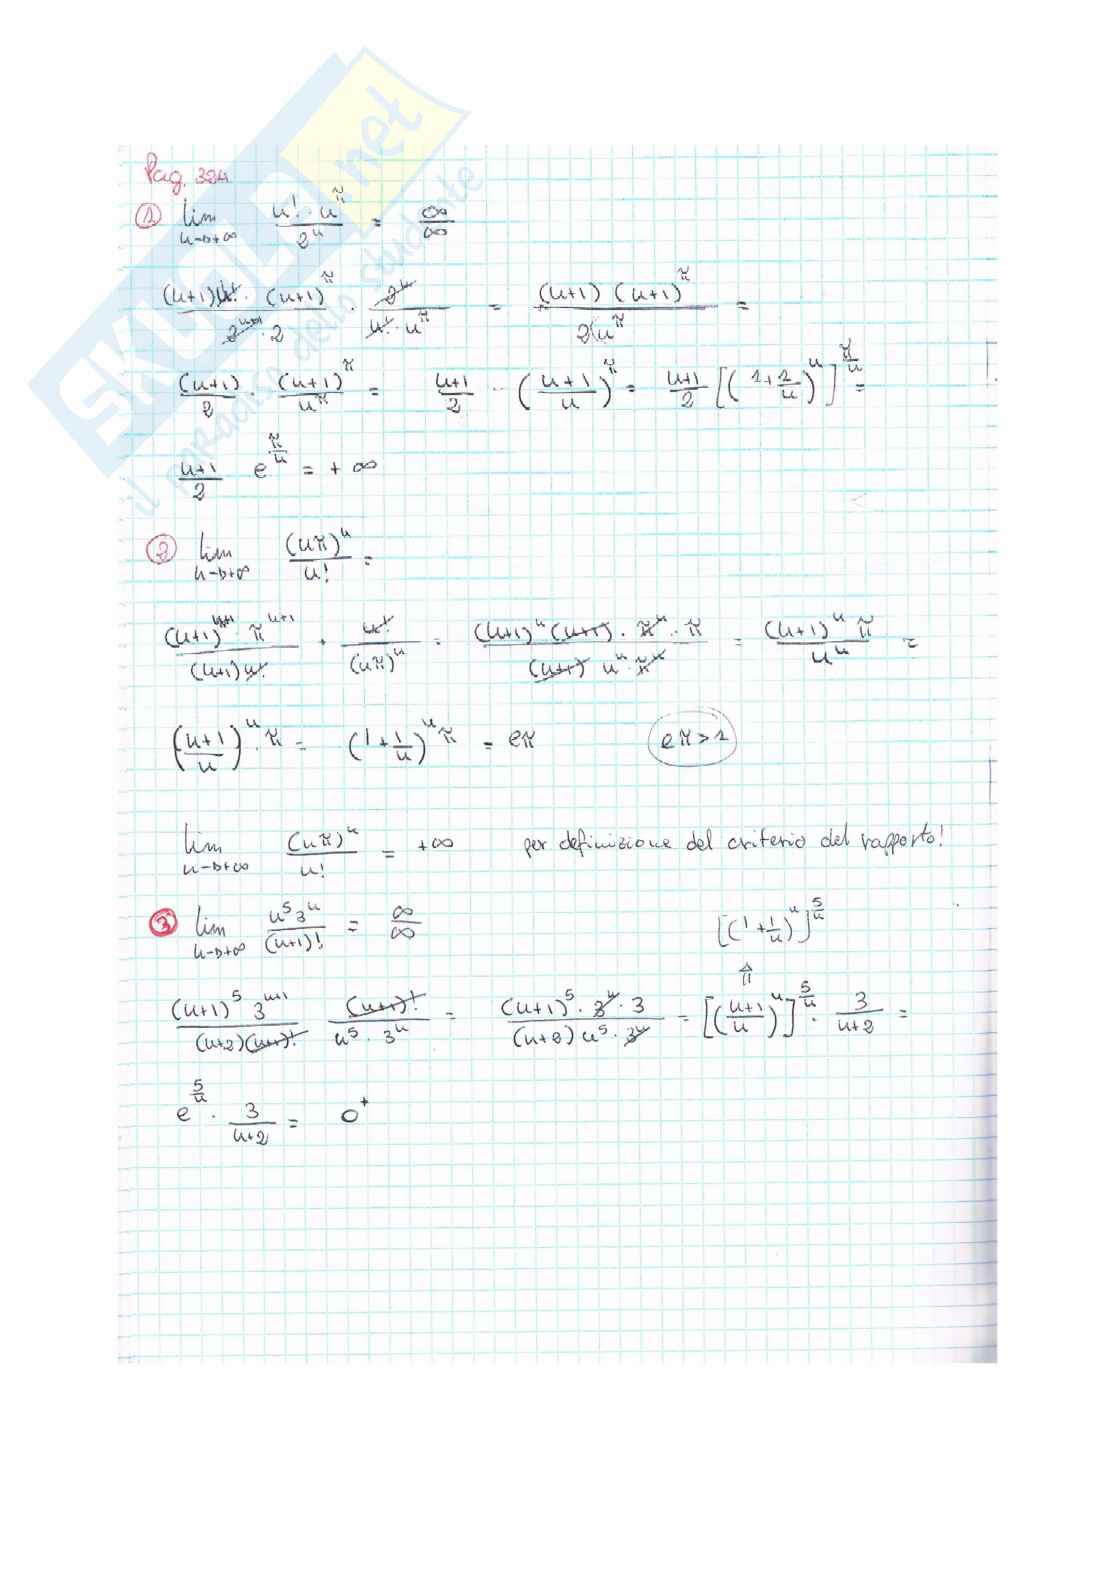 SKUOLA.net
il paradiso dello studente
Pag. 324
① lim n→+∞ n!·n^π / 2^n = ∞/∞
(n+1)n!·(n+1)^π / 2^(n+1)·2 · 2^n / n!·n^π = (n+1)(n+1)^π / 2(n^π =
(n+1)/2 · (n+1)^π / n^π = n+1/2 · (n+1/n)^π = n+1/2 [(1+1/n)^n]^(π/n) =
n+1/2 e^(π/n) = +∞
② lim n→+∞ (nπ)^n / n! =
(n+1)^(n+1)·π^(n+1) / (n+1)n! · n! / (nπ)^n = (n+1)^n (n+1)·π^n·π / (n+1) n^n·π^n = (n+1)^n π / n^n =
(n+1/n)^n·π = (1+1/n)^n π = eπ eπ>1
lim n→+∞ (nπ)^n / n! = +∞ per definizione del criterio del rapporto!
③ lim n→+∞ n^5 3^n / (n+1)! = ∞/∞ [(1+1/n)^n]^(5/n)
⇑
(n+1)^5 3^(n+1) / (n+2)(n+1)! (n+1)! / n^5·3^n = (n+1)^5·3^n·3 / (n+2) n^5·3^n = [(n+1/n)^n]^(5/n) · 3/n+2 =
e^(5/n) · 3/n+2 = 0^+